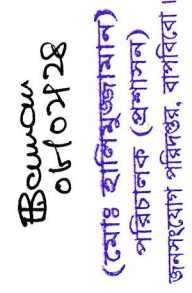 (মোঃ হালিমুজ্জামান)
পরিচালক (প্রশাসন)
জনসংযোগ পরিদপ্তর, বাপবিবো।